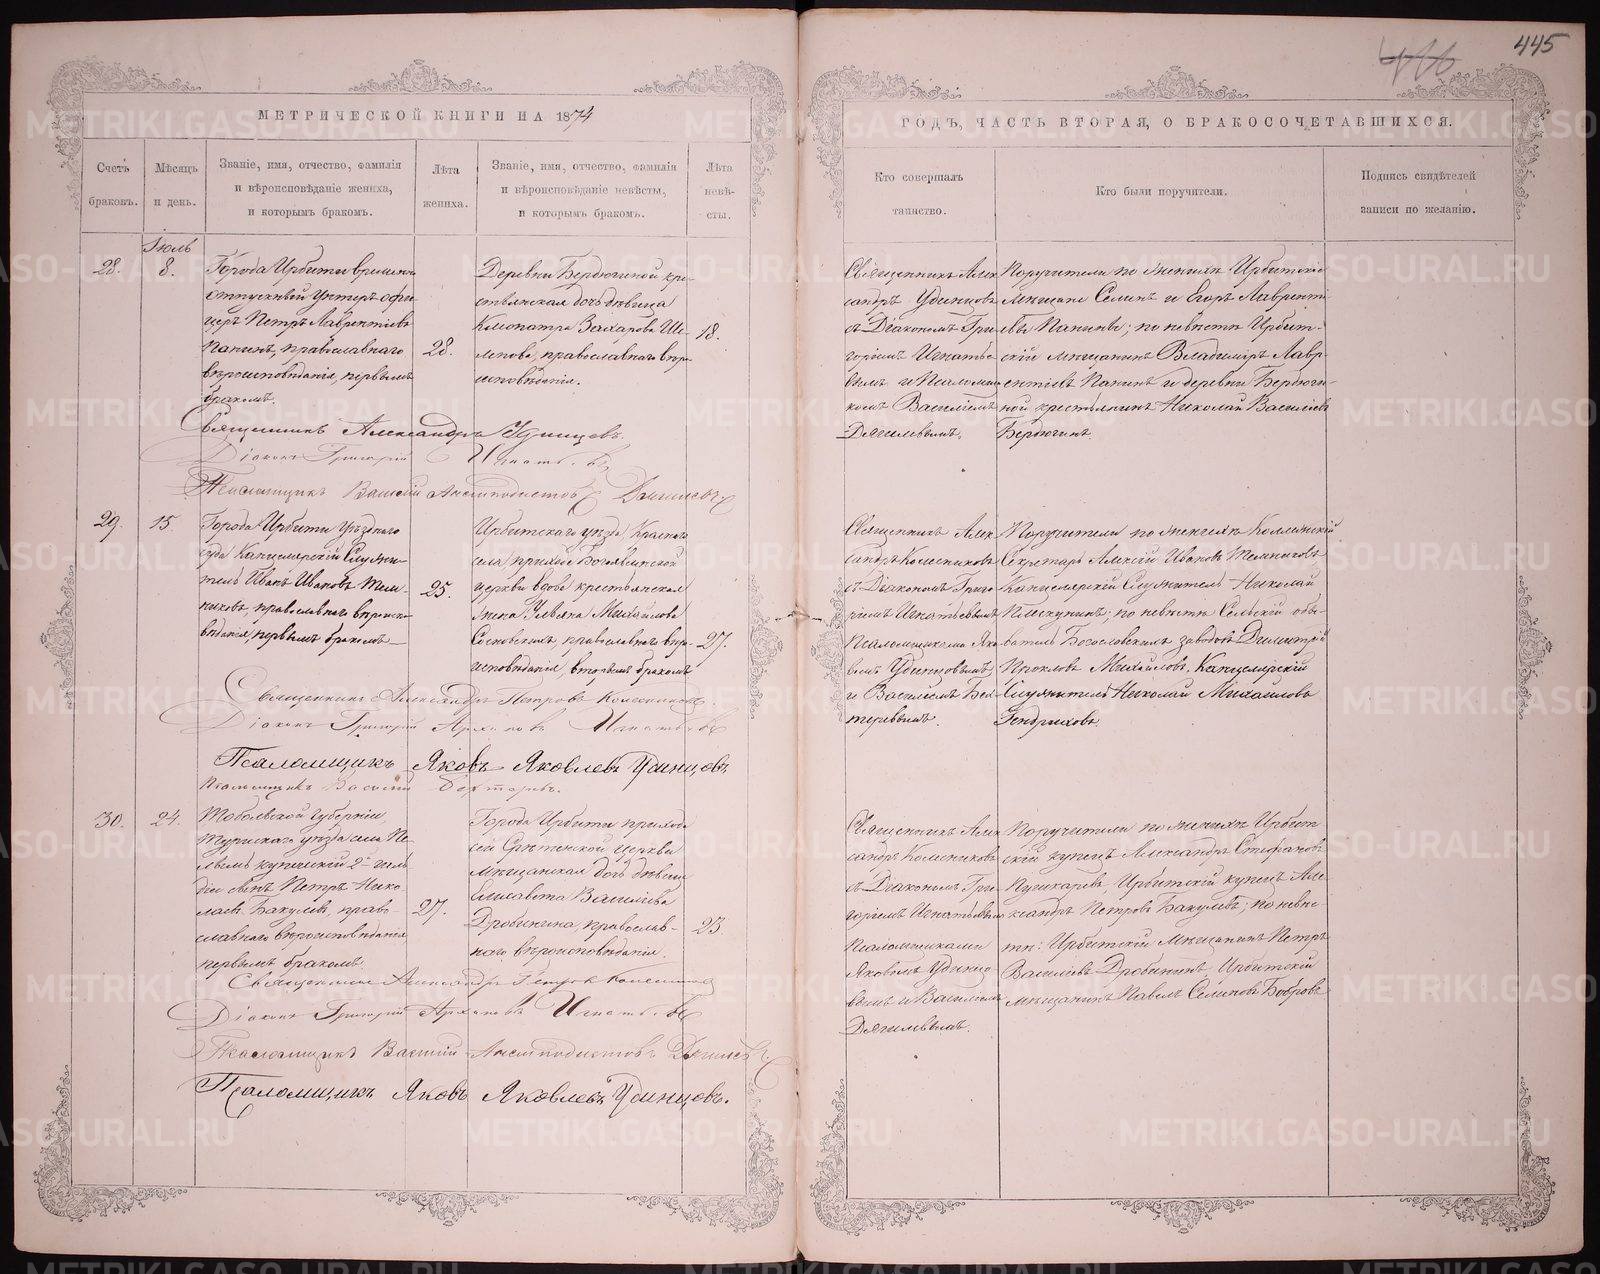 445
МЕТРИЧЕСКОЙ КНИГИ НА 1874
ГОДЪ, ЧАСТЬ ВТОРАЯ, О БРАКОСОЧЕТАВШИХСЯ.
Счетъ браковъ.
Мѣсяцъ и день.
Званіе, имя, отчество, фамилія
и вѣроисповѣданіе жениха,
и которымъ бракомъ.
Лѣта жениха.
Званіе, имя, отчество, фамилія
и вѣроисповѣданіе невѣсты,
и которымъ бракомъ.
Лѣта невѣ-
сты.
Кто совершалъ
таинство.
Кто были поручители.
Подпись свидѣтелей
записи по желанію.
Іюль
28.
8.
Города Ирбити временно
отпускный унтеръ офи-
церъ Петръ Лаврентіевъ
Папинъ, православнаго
вѣроисповѣданія, первымъ
бракомъ.
28.
Деревни Бердюгиной кре-
стьянская дочь дѣвица
Клеопатра Захарова Ше-
православнаго вѣро-
исповѣданія.
18.
Священникъ Алек-
сандръ Удинцовъ
съ Діакономъ Гри-
горіемъ Игнатье-
вымъ и Псаломщи-
комъ Василіемъ
Дягилевымъ.
Поручители по женихѣ Ирбитскіе
мѣщане Семенъ и Егоръ Лавренті-
евы Папины; по невѣстѣ Ирбит-
скій мѣщанинъ Владиміръ Лавр-
ентіевъ Папинъ и деревни Бердюги-
ной крестьянинъ Николай Василіевъ
Бердюгинъ.
Священникъ Александръ Удинцовъ.
Діаконъ Григорій Игнатьевъ
Псаломщикъ Василій Анемподистовъ Дягилевъ
29.
15.
Города Ирбити Уѣзднаго
суда Канцелярскій Служи-
тель Иванъ Ивановъ Темн-
иковъ, православнаго вѣроиспо-
вѣданія, первымъ бракомъ.
25.
Ирбитскаго уѣзда Краснаго
села прихода Богоявленской
церкви вдова крестьянская
жена Ульяна Михайлова
православнаго вѣро-
исповѣданія, вторымъ бракомъ
27.
Священникъ Алек-
сандръ Колесниковъ
съ Діакономъ Григо-
ріемъ Игнатьевымъ
Псаломщиками Яко-
вомъ Удинцовымъ
и Василіемъ Бех-
теревымъ.
Поручители по женихѣ Коллежскій
Секретарь Алексій Ивановъ Темниковъ,
Канцелярскій Служитель Николай
по невѣстѣ Сельскій обы-
ватель Богословскихъ заводовъ Димитрій
Прокловъ Михайловъ, Канцелярскій
Служитель Николай Михайловъ
Гендриховъ.
Священникъ Александръ Петровъ Колесниковъ
Діаконъ Григорій Архиповъ Игнатьевъ
Псаломщикъ Яковъ Яковлевъ Удинцовъ
Псаломщикъ Василій Бехтеревъ.
30.
24.
Тобольской Губерніи,
Туринскаго уѣзда села Пе-
лыма купеческій 2й гиль-
діи сынъ Петръ Нико-
лаевъ Бакулевъ, право-
славнаго вѣроисповѣданія
первымъ бракомъ.
27.
Города Ирбити прихода
сей Срѣтенской Церкви
мѣщанская дочь дѣвица
Елисавета Василіева
Дробинина, православ-
наго вѣроисповѣданія.
23
Священникъ Алек-
сандръ Колесниковъ
съ Діакономъ Гри-
горіемъ Игнатьевымъ
Псаломщиками
Яковомъ Удинцо-
вымъ и Василіемъ
Дягилевымъ.
Поручители по женихѣ Ирбит-
скій купецъ Александръ Стефановъ
Пушкаревъ, Ирбитскій купецъ Але-
ксандръ Петровъ Бакулевъ; по невѣс-
тѣ: Ирбитскій мѣщанинъ Петръ
Василіевъ Дробининъ, Ирбитскій
мѣщанинъ Павелъ Семеновъ Бобровъ
Священникъ Александръ Петровъ Колесниковъ
Діаконъ Григорій Архиповъ Игнатьевъ
Псаломщикъ Василій Анемподистовъ Дягилевъ
Псаломщикъ Яковъ Яковлевъ Удинцовъ.
METRIKI.GASO-URAL.RU